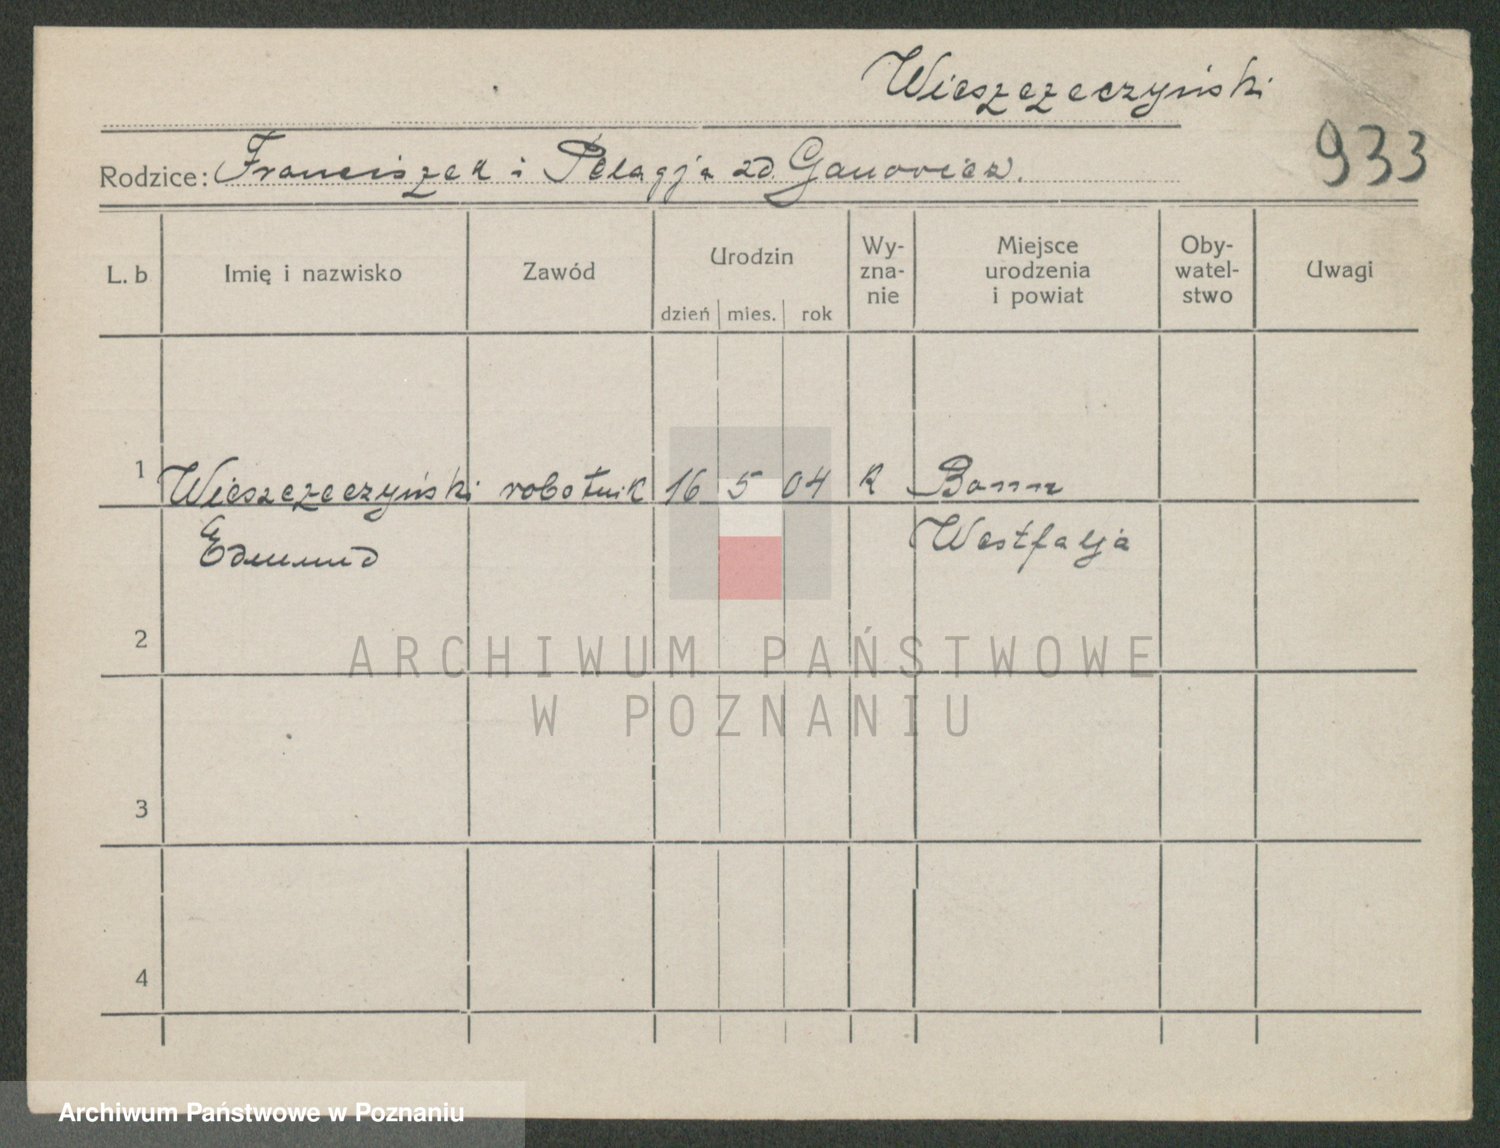 Wieszczeczyński
933
Rodzice: Franciszek i Pelagja zd. Ganowicz.
L. b Imię i nazwisko Zawód Urodzin Wy-zna-nie Miejsce urodzenia i powiat Oby-watel-stwo Uwagi
dzień mies. rok
1 Wieszczeczyński robotnik 16 5 04 R Bonn
Edmund Westfalja
2
ARCHIWUM PAŃSTWOWE
W POZNANIU
3
4
Archiwum Państwowe w Poznaniu